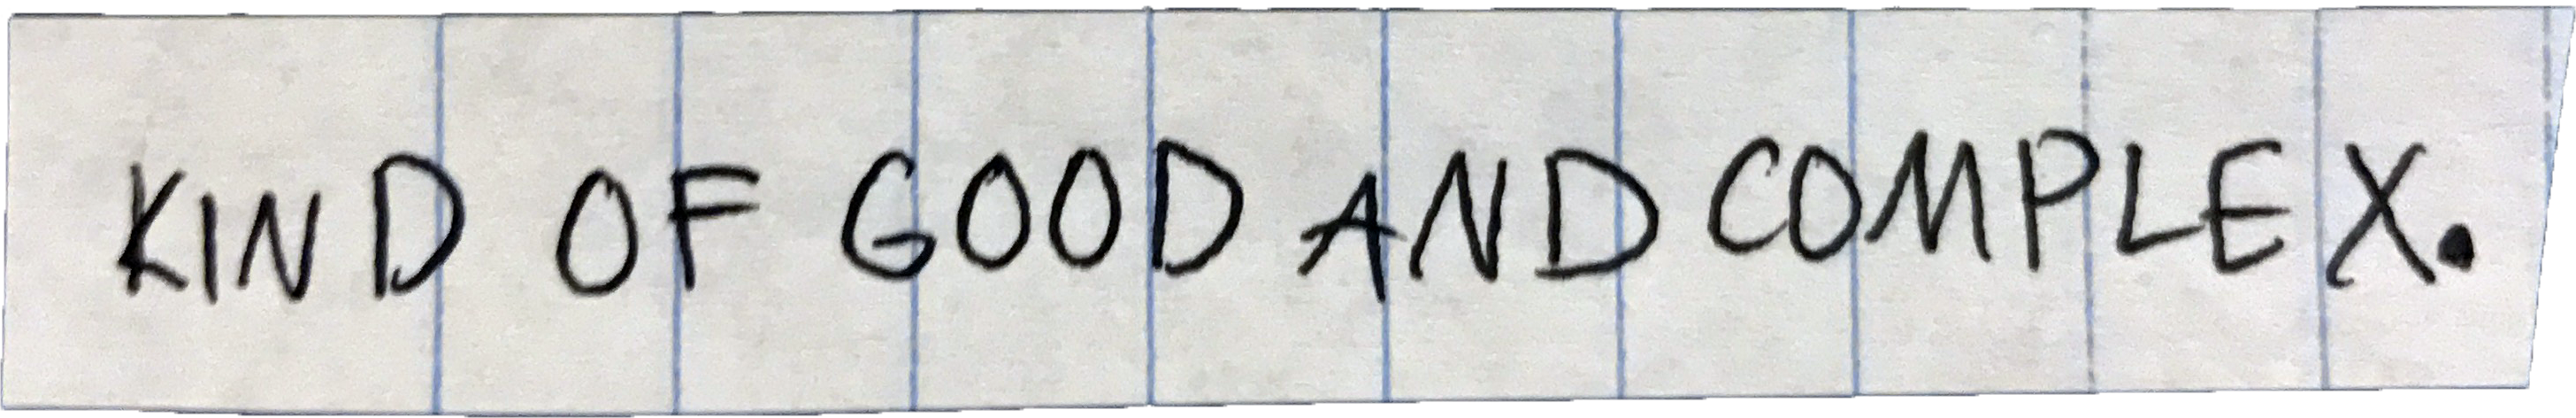 KIND OF GOOD AND COMPLEX.